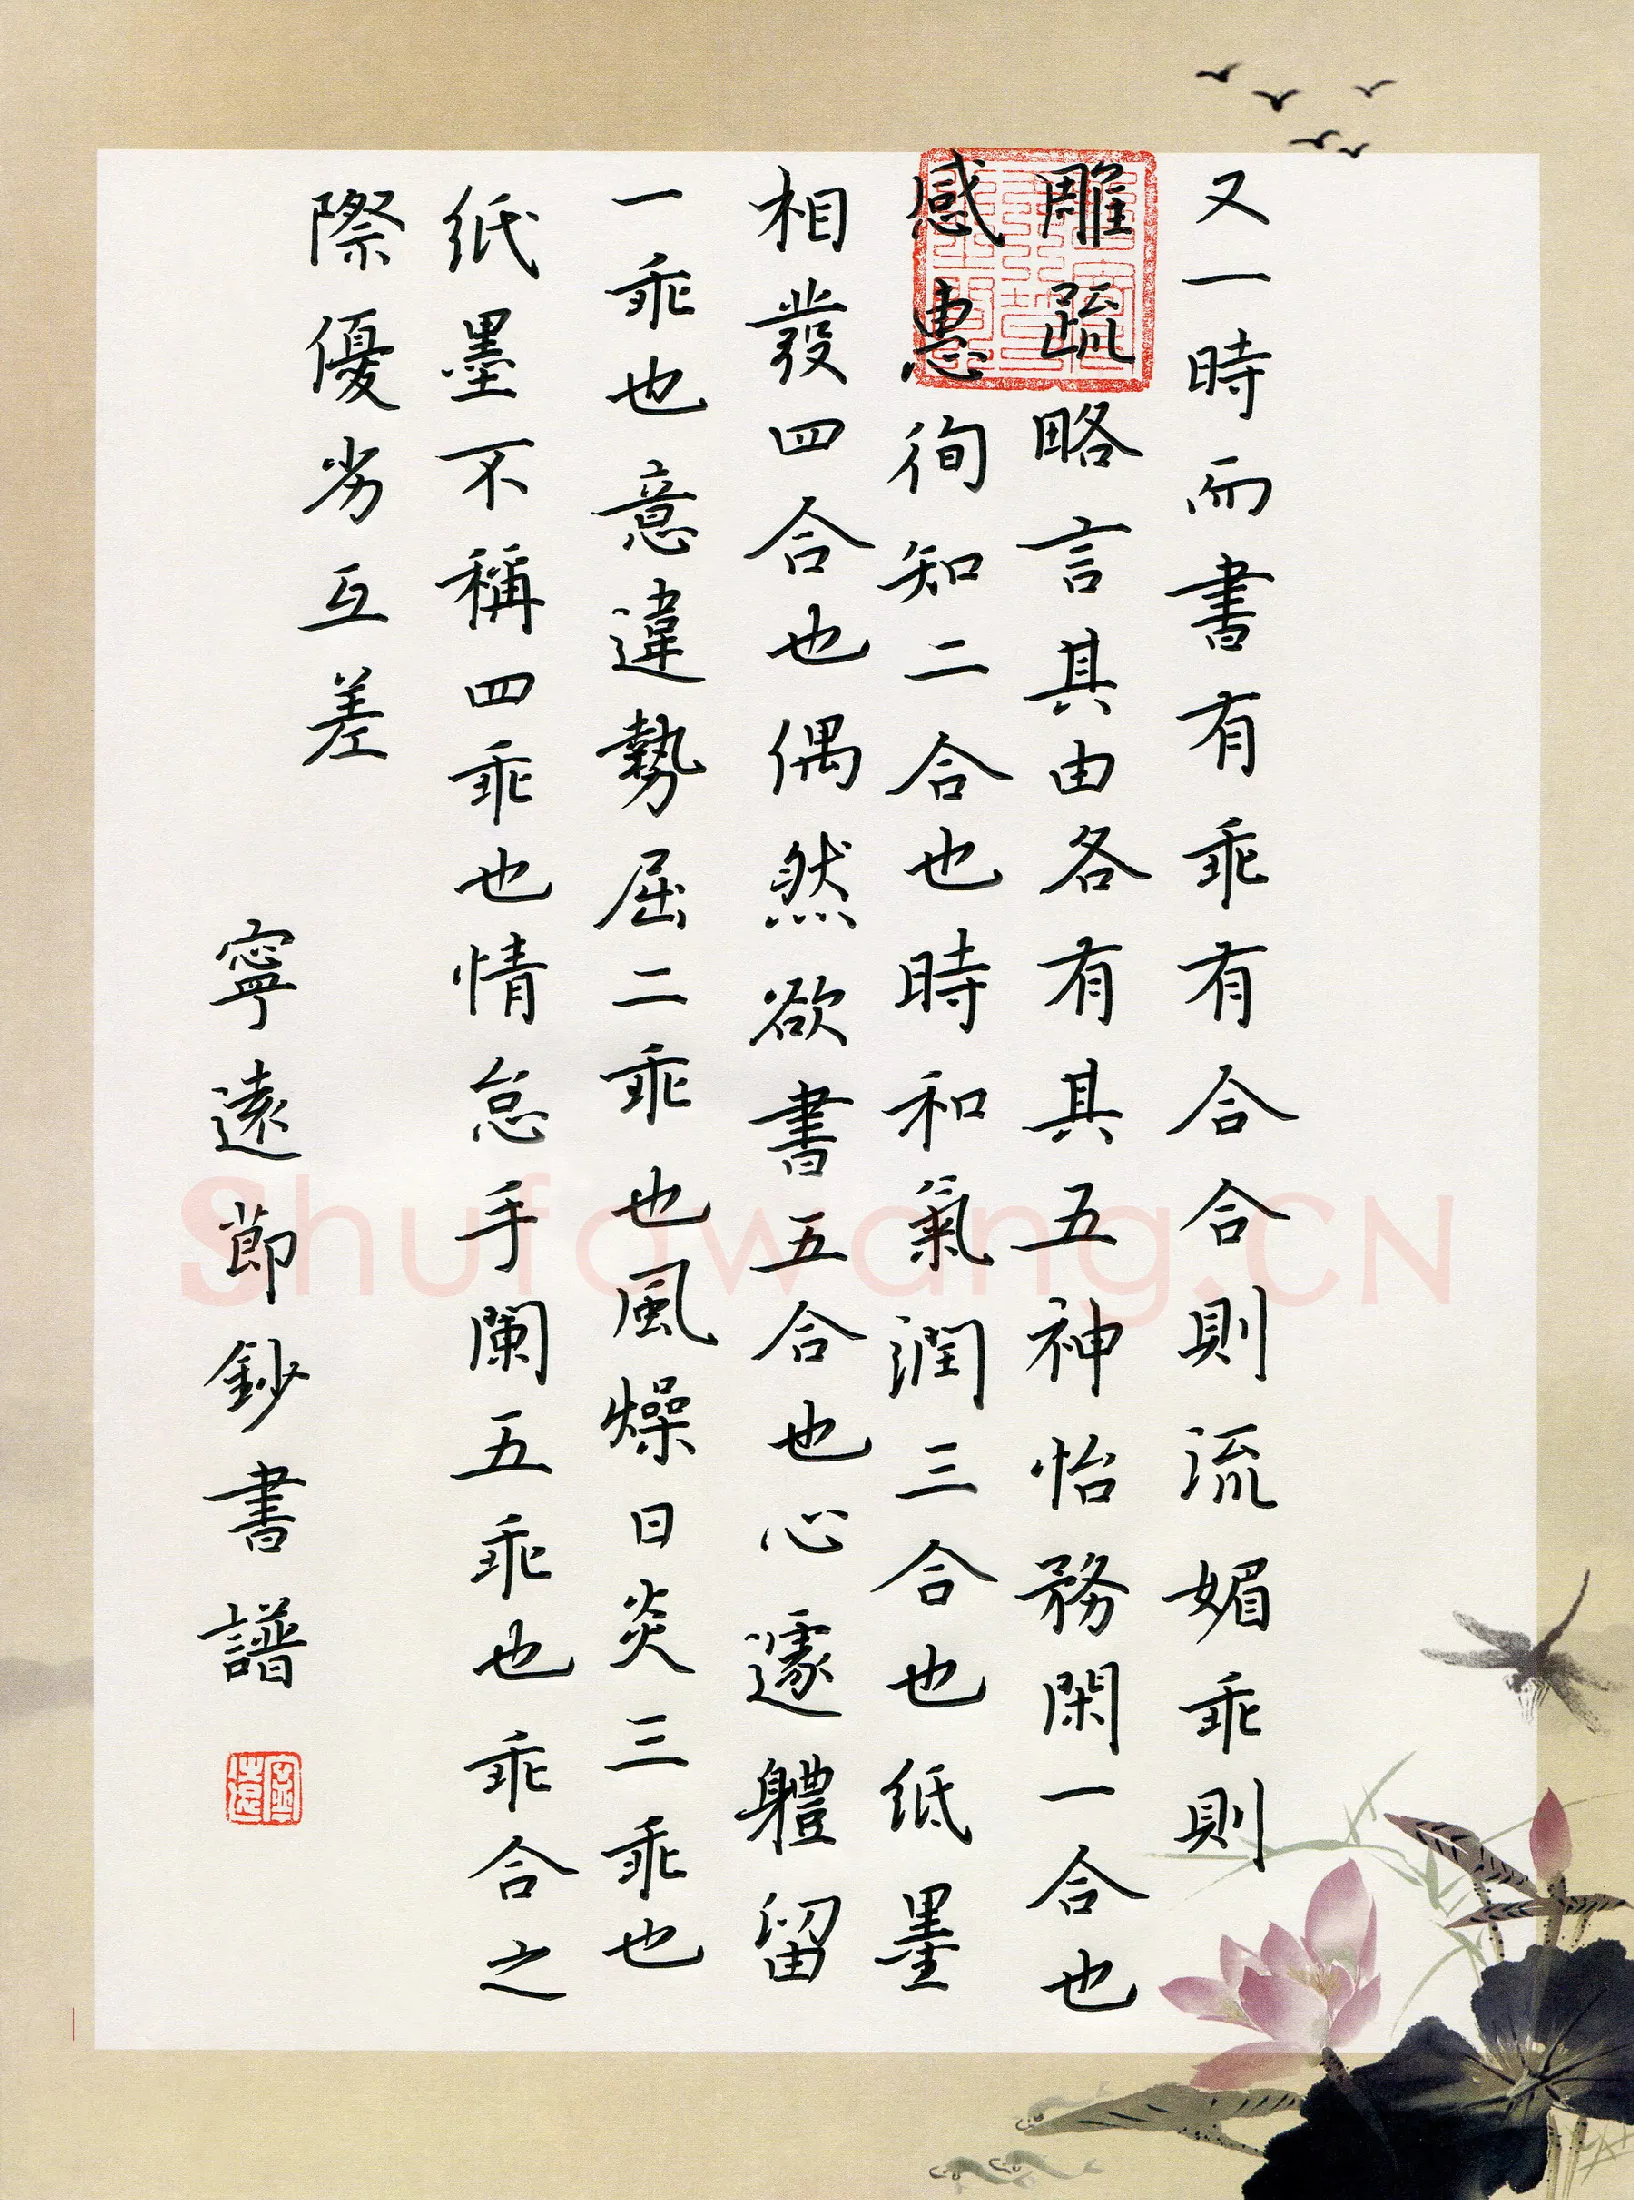 又一時而書有乖有合合則流媚乖則
雕疏略言其由各有其五神怡務閑一合也
感惠徇知二合也時和氣潤三合也紙墨
相發四合也偶然欲書五合也心遽體留
一乖也意違勢屈二乖也風燥日炎三乖也
紙墨不稱四乖也情怠手闌五乖也乖合之
際優劣互差
寧遠節鈔書譜
Shufawang.CN